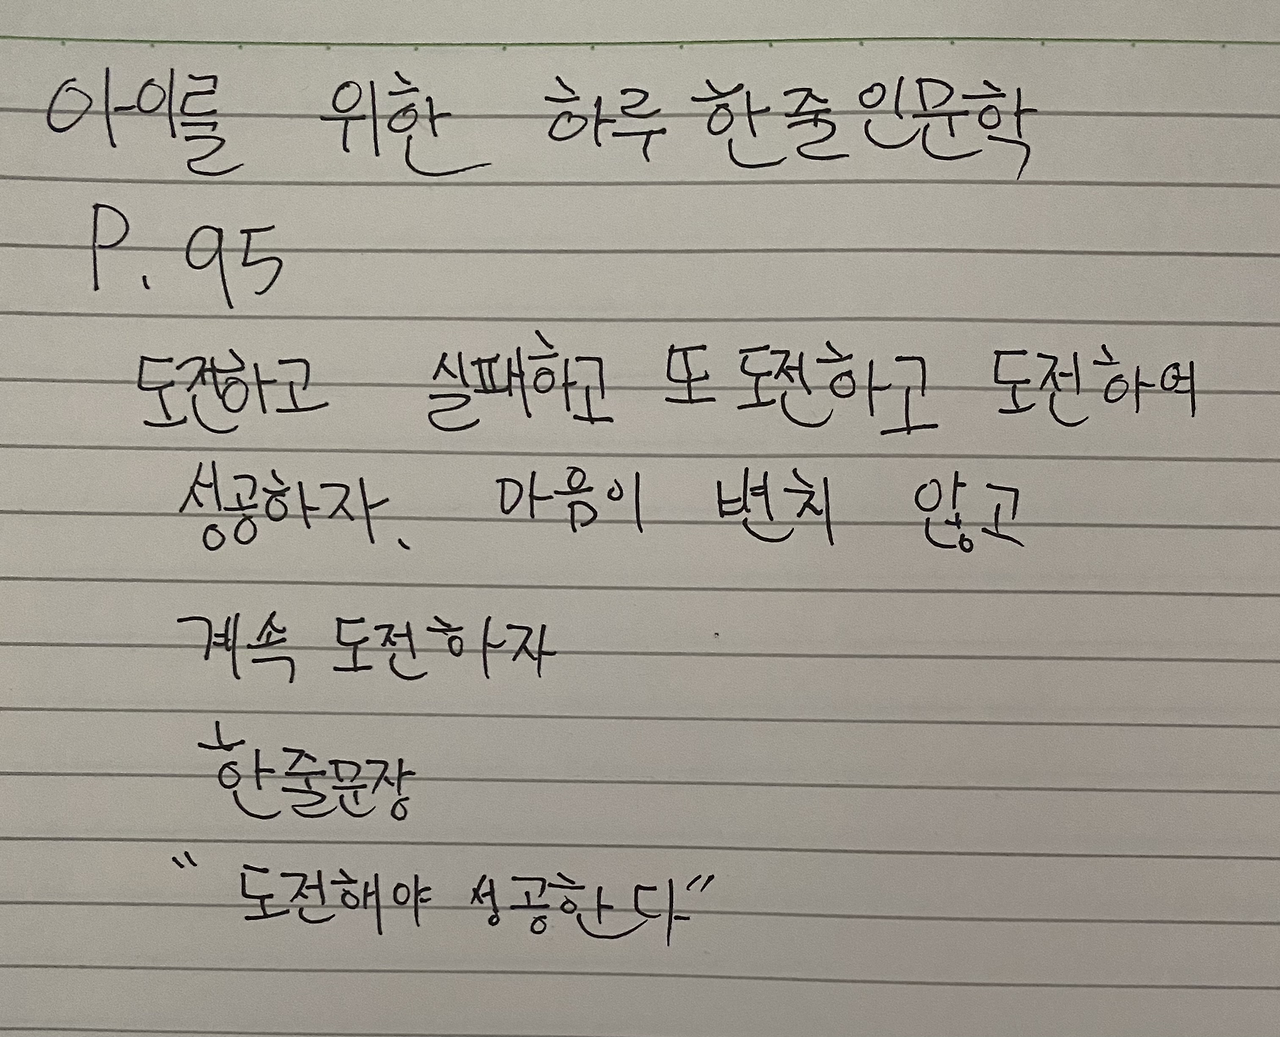 아이를 위한 하루 한줄 인문학
P. 95
도전하고 실패하고 또 도전하고 도전하여
성공하자. 마음이 변치 않고
계속 도전하자
한줄문장
" 도전해야 성공한다"